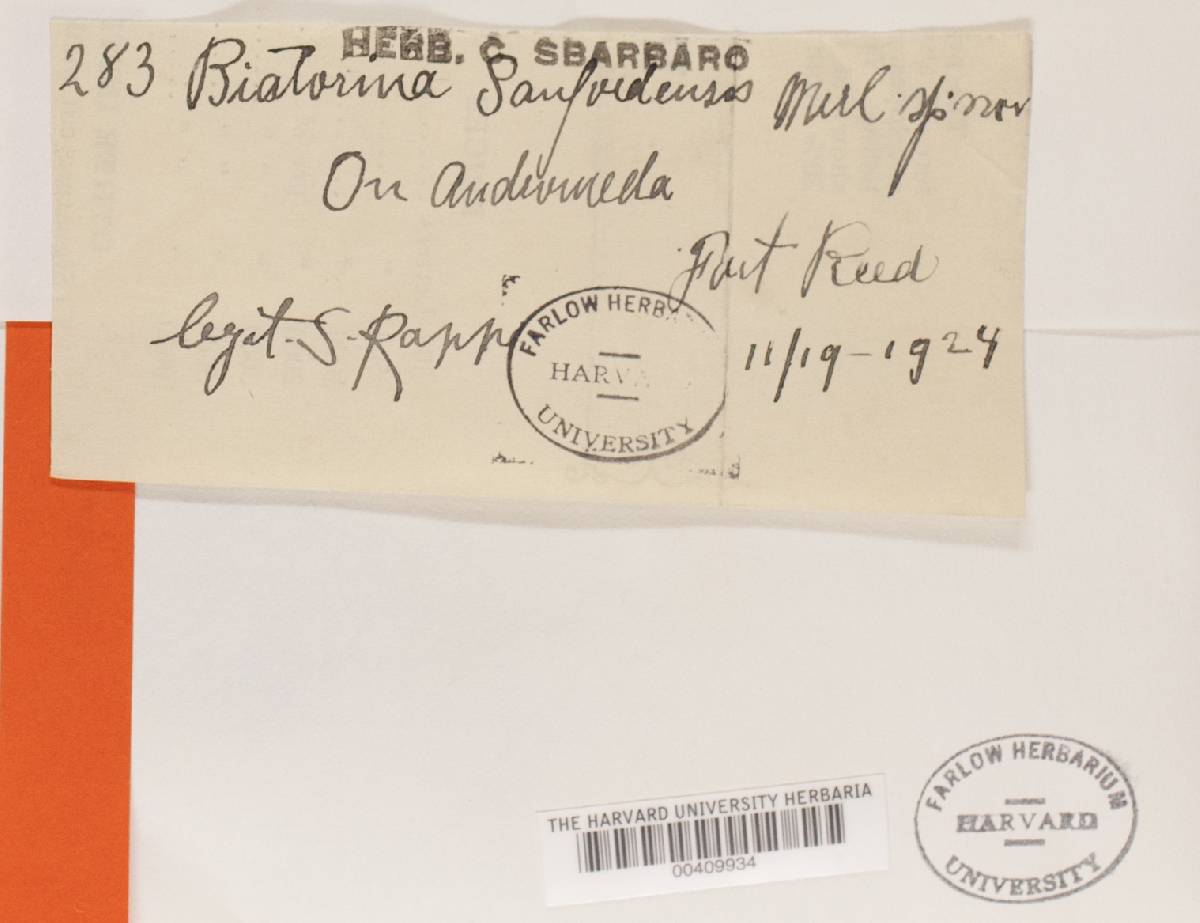 HERB. C. SBARBARO
283 Biatorina Sanfordensis Merl. sp. nov
On Andromeda
Fort Reed
legit. S. Rapp
11/19-1924
FARLOW HERBA
HARVA
UNIVERSITY
THE HARVARD UNIVERSITY HERBARIA
00409934
FARLOW HERBARIUM
HARVARD
UNIVERSITY